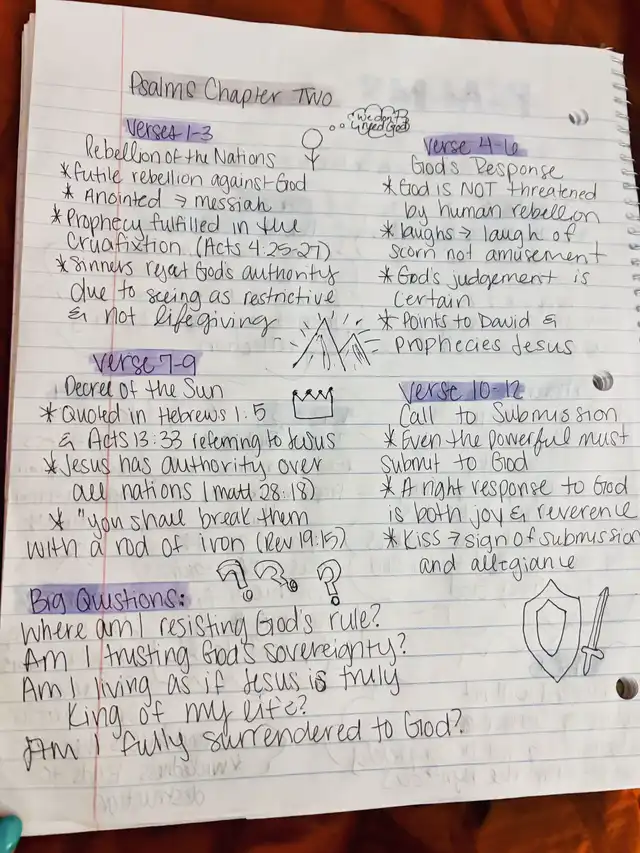 Psalms Chapter Two
Verses 1-3
Rebellion of the Nations
* futile rebellion against God
* Anointed → messiah
* Prophecy fulfilled in the
Crucifixtion (Acts 4:25-27)
* Sinners reject God's authority
due to seeing as restrictive
& not lifegiving
we don't
need God
Verse 4-6
God's Response
* God is NOT threatened
by human rebellion
* laughs → laugh of
scorn not amusement
* God's judgement is
certain
* Points to David &
prophecies Jesus
Verse 7-9
Decree of the Sun
* Quoted in Hebrews 1:5
& Acts 13:33 referring to Jesus
* Jesus has authority over
all nations (matt 28:18)
* "you shall break them
with a rod of iron (Rev 19:15)
Verse 10-12
Call to Submission
* Even the powerful must
submit to God
* A right response to God
is both joy & reverence
* Kiss → sign of submission
and allegiance
???
Big Questions:
Where am I resisting God's rule?
Am I trusting God's sovereignty?
Am I living as if Jesus is truly
King of my life?
Am I fully surrendered to God?